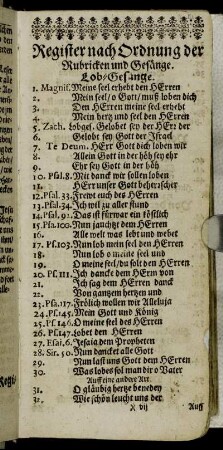 Register nach Ordnung der
Rubricken und Gesänge.
Lob-Gesänge.
1. Magnif. Meine seel erhebt den HErren
2. Mein seel/ o Gott/ muß loben dich
3. Den HErren meine seel erhebt
4. Mein hertz und seel den HErren
5. Zach. lobges. Gelobet sey der HErr der
6. Gelobt sey Gott der Israel
7. Te Deum. HErr Gott dich loben wir
8. Allein Gott in der höh sey ehr
9. Ehr sey Gott in der höh
10. Psal. 8. Mit danck wir sollen loben
11. HErr unser Gott beherrscher
12. Psal. 33. Frewt euch des HErren
13. Psal. 34. Ich wil zu aller stund
14. Psal. 92. Das ist fürwar ein köstlich
15. Psa. 100. Nun jauchtzt dem HErren
16. Alle welt was lebt und webet
17. Ps. 103. Nun lob mein seel den HErren
18. Nun lob o meine seel und
19. O meine seel/ du soll den HErren
20. Ps. 111. Ich dancke dem HErrn von
21. Ich sag dem HErren danck
22. Von gantzem hertzen und
23. Psa. 117. Frölich wollen wir Alleluja
24. Ps. 145. Mein Gott und König
25. Ps. 146. O meine seel des HErren
26. Ps. 147. lobet den HErren
27. Esai. 6. Jesaia dem Propheten
28. Sir. 50. Nun dancket alle Gott
29. Nun last uns Gott dem HErren
30. Was lobes sol man dir o Vater
Auff eine andere Art.
31. O gläubig hertze benedey
32. Wie schön leucht uns der
X vij Auff